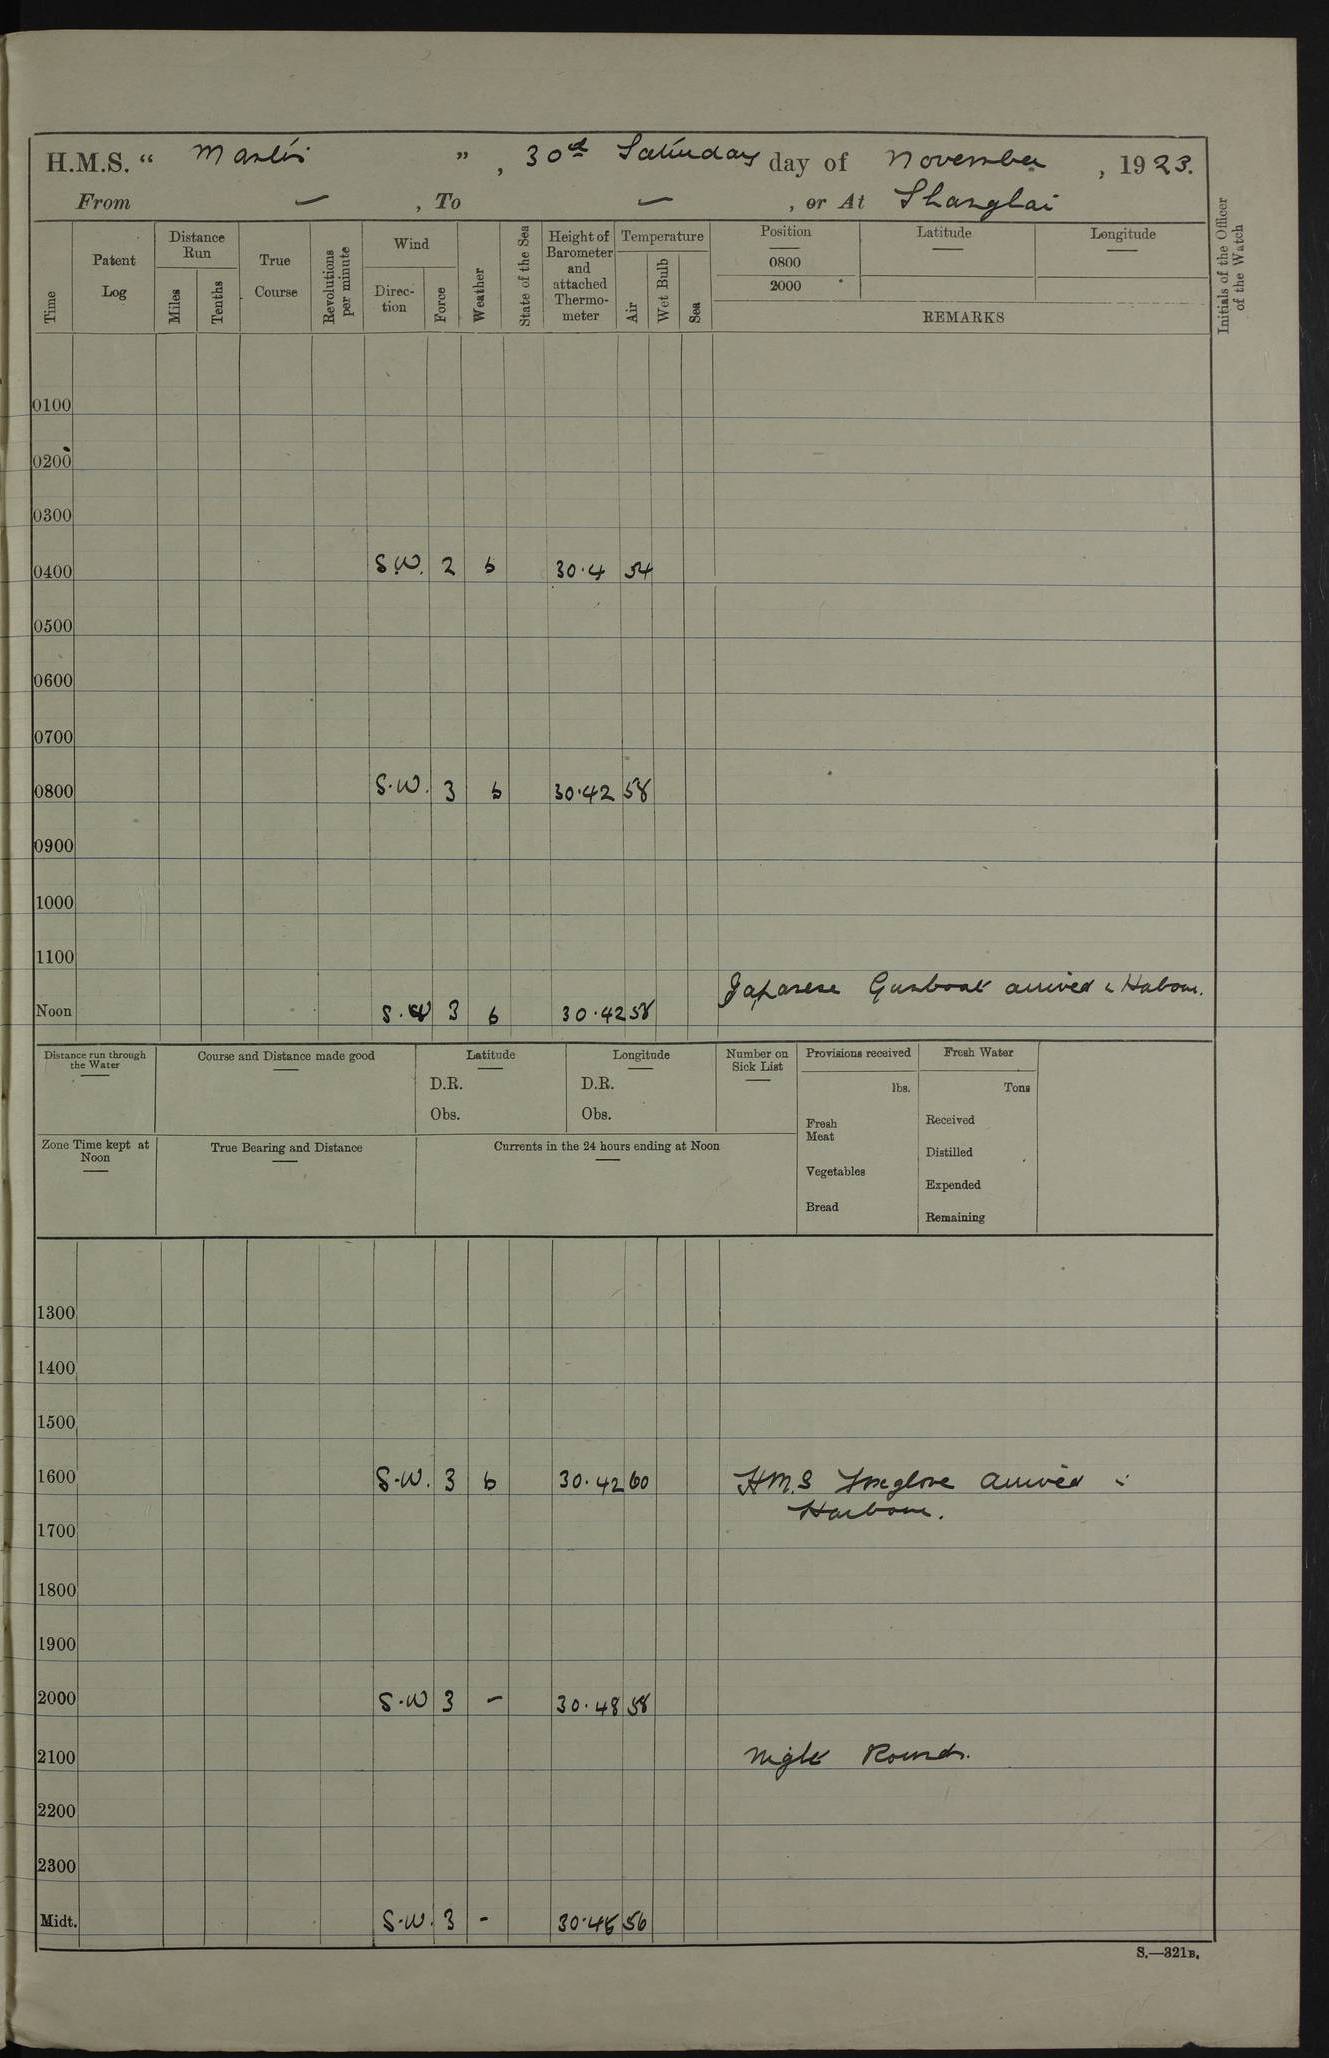 H.M.S. " ", 30th Saturday day of November, 1923.
From — , To — , or At Shanghai
Time
Patent Log
Distance Run
Miles
Tenths
True Course
Revolutions per minute
Wind
Direc-tion
Force
Weather
State of the Sea
Height of Barometer and attached Thermo-meter
Temperature
Air
Wet Bulb
Sea
Position
0800
2000
Latitude
Longitude
REMARKS
Initials of the Officer of the Watch
0100
0200
0300
0400 S.W. 2 b 30.4 54
0500
0600
0700
0800 S.W. 3 b 30.42 58
0900
1000
1100
Japanese Gunboat arrived Harbour.
Noon S.W 3 b 30.42 58
Distance run through the Water
Course and Distance made good
Latitude
D.R.
Obs.
Longitude
D.R.
Obs.
Number on Sick List
Provisions received
lbs.
Fresh Meat
Vegetables
Bread
Fresh Water
Tons
Received
Distilled
Expended
Remaining
Zone Time kept at Noon
True Bearing and Distance
Currents in the 24 hours ending at Noon
1300
1400
1500
1600 S.W. 3 b 30.42 60 H.M.S Foxglove arrived in
Harbour.
1700
1800
1900
2000 S.W 3 – 30.48 58
2100 Night Rounds.
2200
2300
Midt. S.W. 3 - 56
S.—321B.